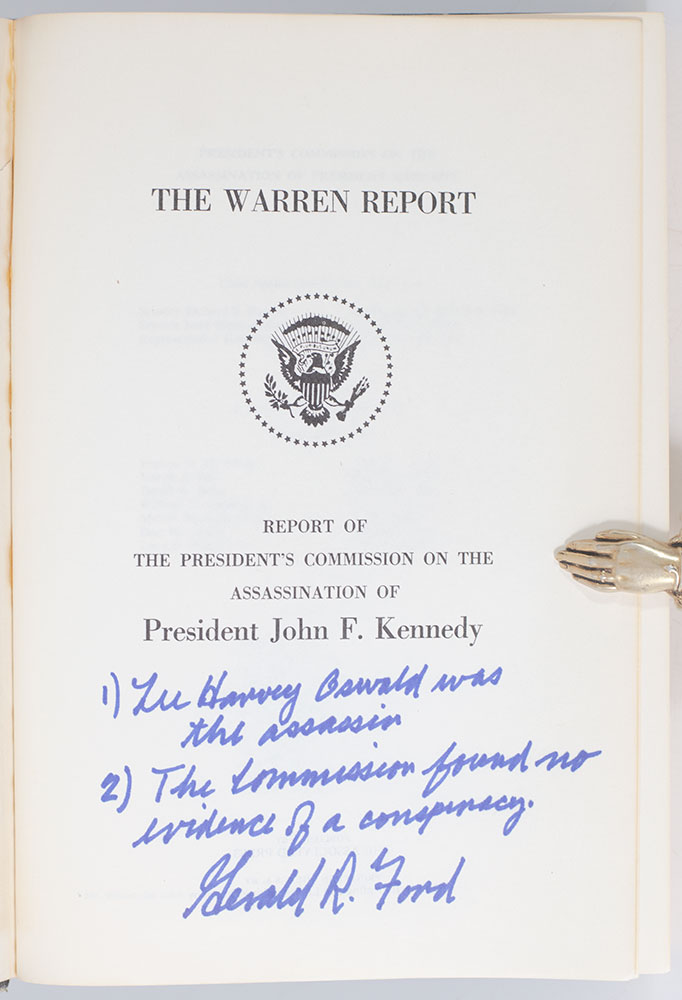 THE WARREN REPORT
REPORT OF
THE PRESIDENT'S COMMISSION ON THE
ASSASSINATION OF
President John F. Kennedy
1) Lee Harvey Oswald was
the assassin
2) The Commission found no
evidence of a conspiracy.
Gerald R. Ford